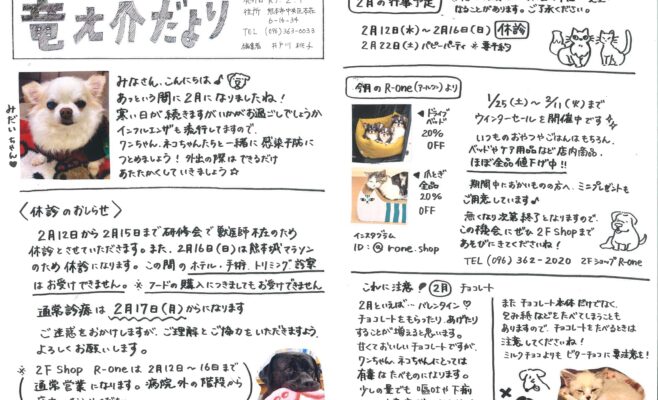 竜之介だより
住所 熊本市中央区本荘
6-16-34
TEL (096) 363-0033
みだいちゃん♥
みなさん、こんにちは♪
あっという間に2月になりましたね!
寒い日が続きますがいかがお過ごしでしょうか
インフルエンザも流行してますので、
ワンちゃん、ネコちゃんたちと一緒に感染予防に
つとめましょう! 外出の際はできるだけ
あたたかくしていきましょう☆
〈休診のおしらせ〉
2月12日から2月15日まで研修会で獣医師不在のため
休診とさせていただきます。また、2月16日(日)は熊本城マラソン
のため休診になります。この間のホテル・手術、トリミング、診察
はお受けできません。※フードの購入につきましてもお受けできません
通常診療は2月17日(月)からになります
ご迷惑をおかけしますが、ご理解とご協力をいただきますよう、
よろしくお願いします。
※ 2F Shop R-oneは2月12日〜16日まで
通常営業になります。病院外の階段から
2月の行事予定
なることがあります。ご了承ください。
2月12日(水)〜2月16日(日) 休診
2月22日(土) パピーパーティ ※要予約
今月のR-one(アールワン)より
◀ドライブ
ベッド
20%
OFF
◀爪とぎ
全品
20%
OFF
インスタグラム
ID:@rone.shop
1/25(土)〜3/11(火)まで
ウインターセールを開催中です
いつものおやつやごはんはもちろん、
ベッドやケア用品など店内商品、
ほぼ全品値下げ中!!
期間中にお買いものの方へ、ミニプレゼントも
ご用意しています♪
無くなり次第終了となりますので、
この機会にぜひ2F Shopまで
あそびにきてくださいね!
TEL (096) 362-2020 2FショップR-one
これに注意 2月 チョコレート
2月といえば…バレンタイン♡
チョコレートをもらったり、あげたり
することが増えると思います。
甘くておいしいチョコレートですが、
ワンちゃん、ネコちゃんにとっては
有毒なたべものになります。
少しの量でも嘔吐や下痢
またチョコレート本体だけでなく、
包み紙などをたべてしまうことも
ありますので、チョコレートをたべるときは
注意してくださいね!
ミルクチョコよりもビターチョコに要注意を!